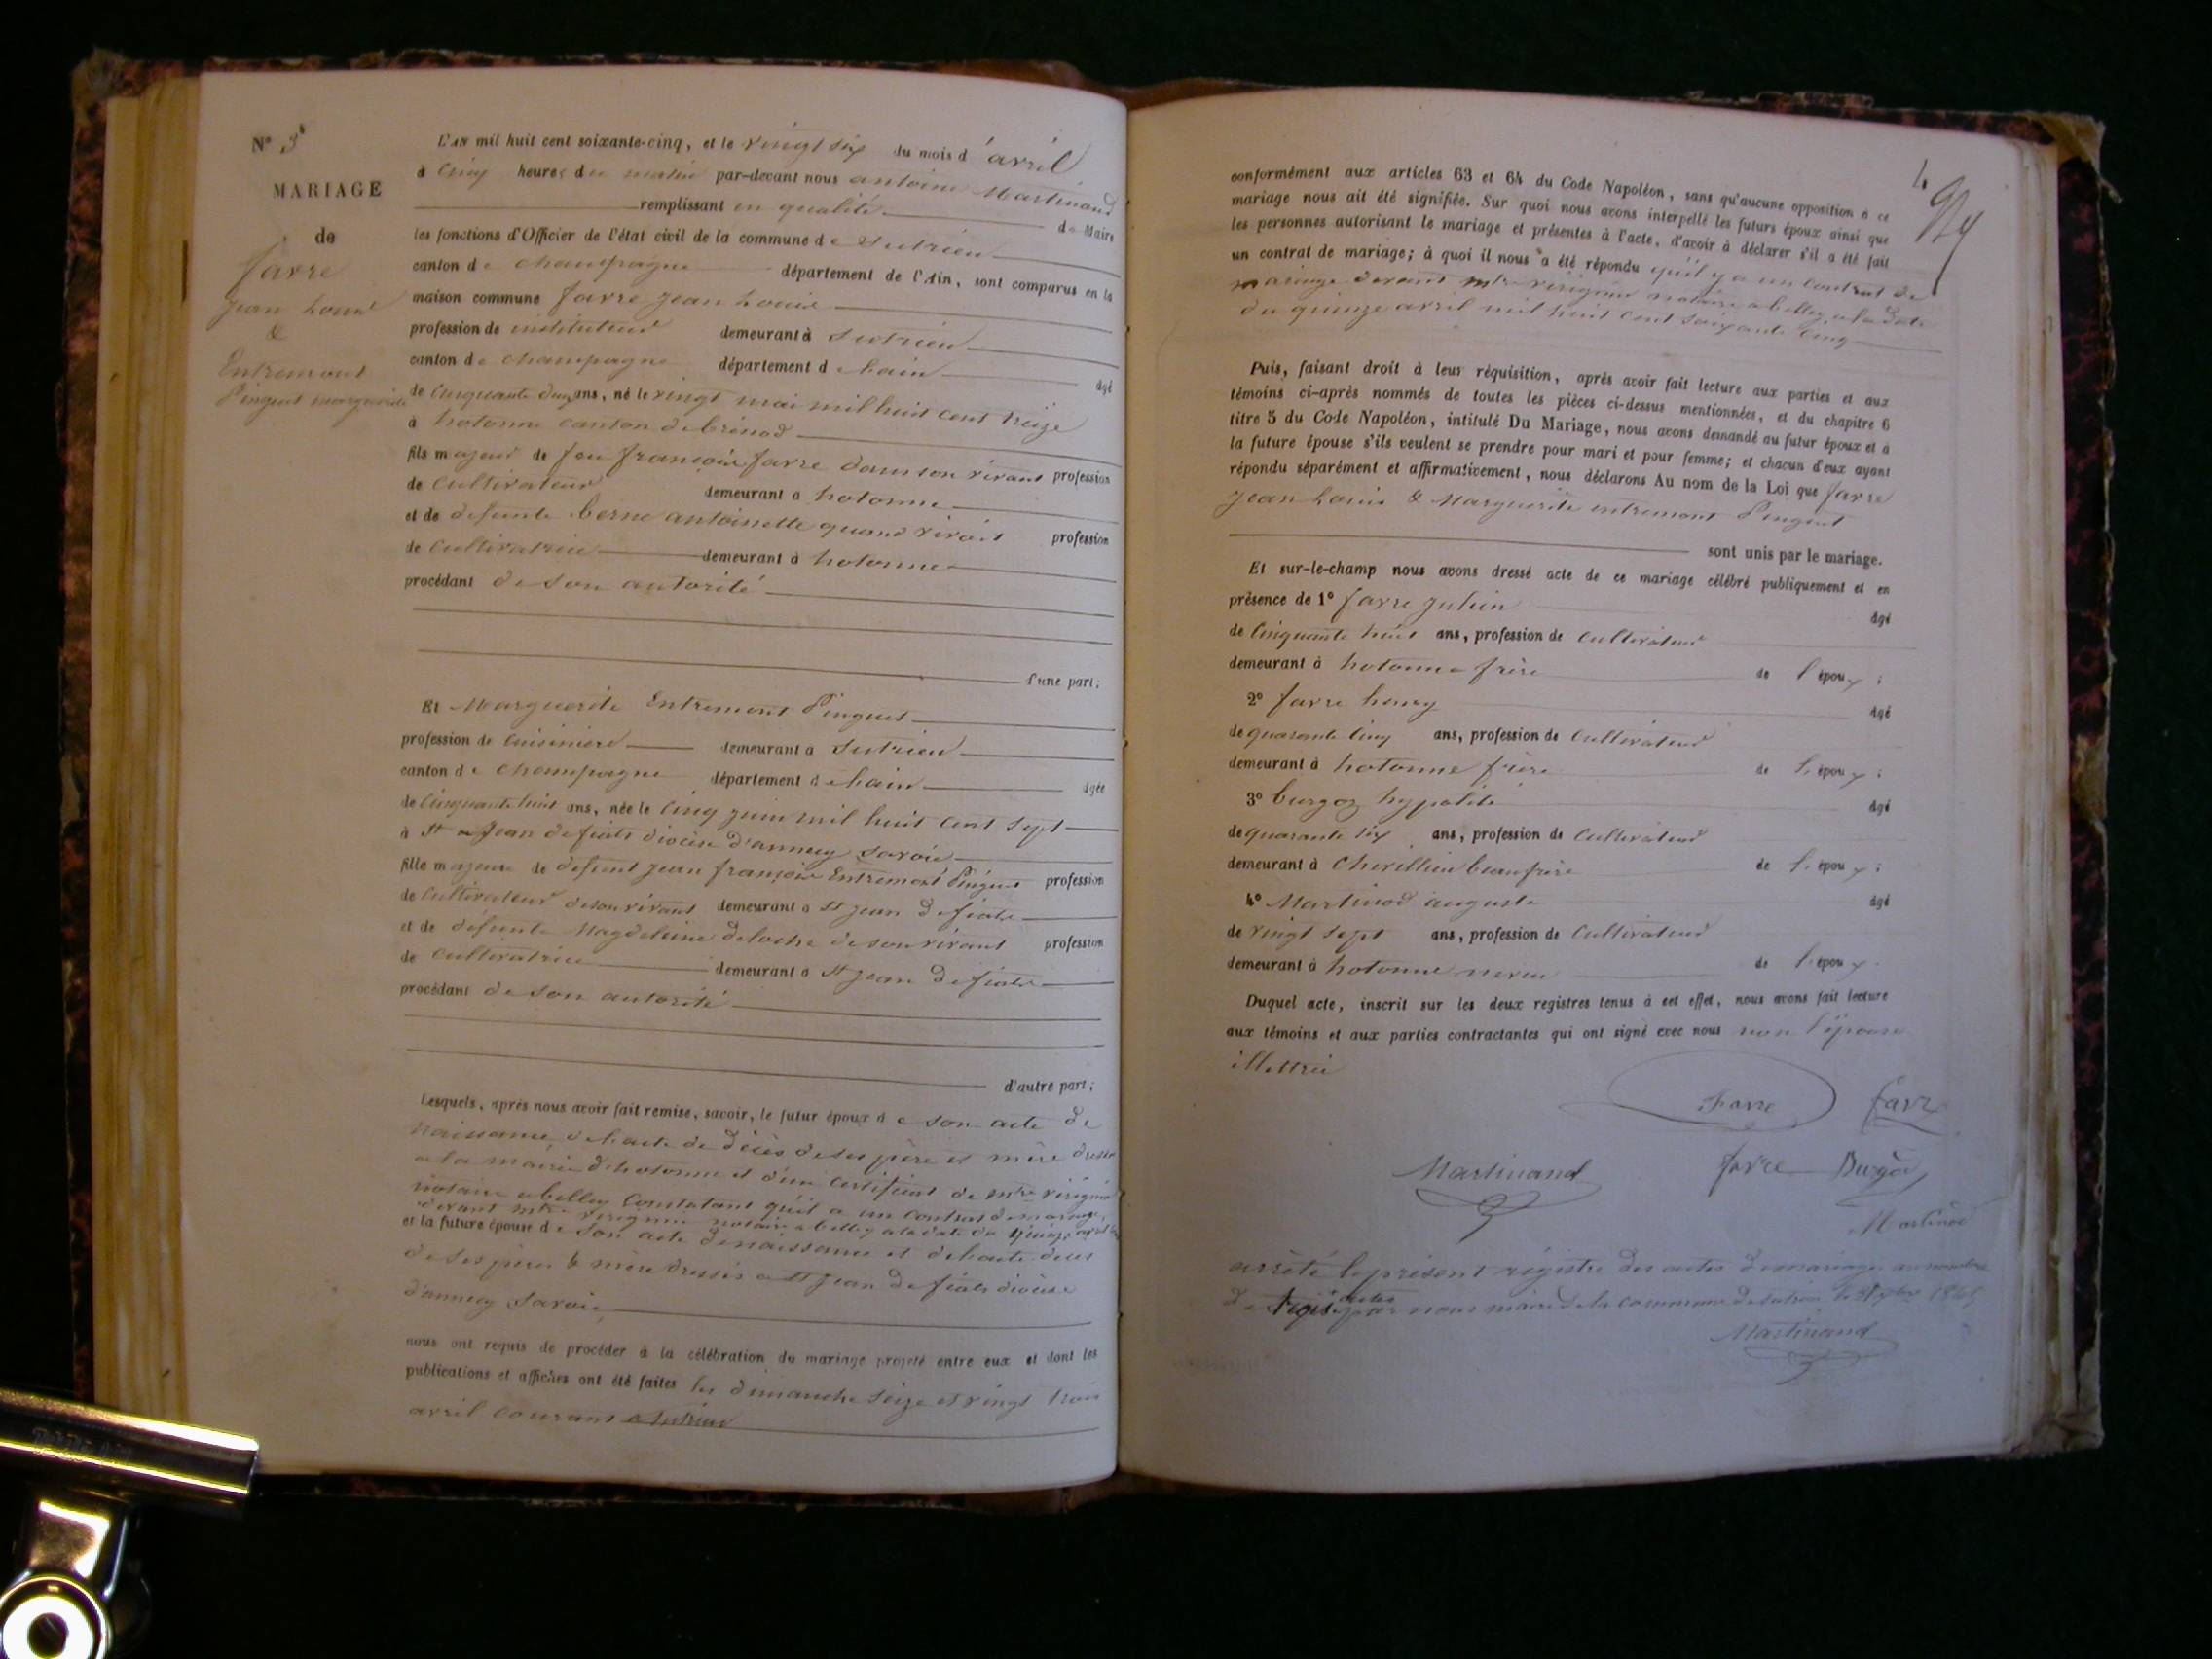 N° 3
MARIAGE
de
favre
jean Louis
&
Entremont
Pinguet marguerite
L'AN mil huit cent soixante-cinq, et le vingt six du mois d'avril
à cinq heures du matin par-devant nous antoine Martinand
remplissant en qualité de Maire
les fonctions d'Officier de l'état civil de la commune de Sutrieu
canton de champagne département de l'Ain, sont comparus en la
maison commune favre jean Louis
profession de instituteur demeurant à Sutrieu
canton de champagne département de lain âgé
de cinquante deux ans, né le vingt mai mil huit cent treize
à hotonne canton de brénod
fils majeur de feu françois favre dans son vivant profession
de cultivateur demeurant à hotonne
et de defunte berne antoinette quand vivait profession
de cultivatrice demeurant à hotonne
procédant de son autorité
d'une part;
Et Marguerite Entremont Pinguet
profession de cuisiniere demeurant à Sutrieu
canton de champagne département de lain âgée
de cinquante huit ans, née le cinq juin mil huit cent sept
à St Jean de fiats diocèse d'annecy Savoie
fille majeure de defunt jean françois Entremont Pinguet profession
de cultivateur de son vivant demeurant à St jean de fiats
et de défunte Magdeleine deloche de son vivant profession
de cultivatrice demeurant à St jean de fiats
procédant de son autorité
d'autre part;
Lesquels, après nous avoir fait remise, savoir, le futur époux de son acte de
naissance, de lacte de décès de ses père et mère dressé
a la mairie dhotonne et d'un certificat de mtre
notaire a belley constatant qu'il a un contrat de mariage,
devant mtre notaire a belley a la date du quinze avril
et la future épouse de son acte denaissance et de lacte deces
de ses père & mère dressés a St jean de fiats diocèse
d'annecy Savoie
nous ont requis de procéder à la célébration du mariage projeté entre eux et dont les
publications et affiches ont été faites les dimanche seize et vingt trois
avril courant a Sutrieu
4
conformément aux articles 63 et 64 du Code Napoléon, sans qu'aucune opposition à ce
mariage nous ait été signifiée. Sur quoi nous avons interpellé les futurs époux ainsi que
les personnes autorisant le mariage et présentes à l'acte, d'avoir à déclarer s'il a été fait
un contrat de mariage; à quoi il nous a été répondu qu'il y a un contrat de
mariage devant mtre notaire a belley, a la date
du quinze avril mil huit cent soixante cinq
Puis, faisant droit à leur réquisition, après avoir fait lecture aux parties et aux
témoins ci-après nommés de toutes les pièces ci-dessus mentionnées, et du chapitre 6
titre 5 du Code Napoléon, intitulé Du Mariage, nous avons demandé au futur époux et à
la future épouse s'ils veulent se prendre pour mari et pour femme; et chacun d'eux ayant
répondu séparément et affirmativement, nous déclarons Au nom de la Loi que favre
jean Louis & Marguerite entremont Pinguet
sont unis par le mariage.
Et sur-le-champ nous avons dressé acte de ce mariage célébré publiquement et en
présence de 1° favre julien âgé
de cinquante huit ans, profession de cultivateur
demeurant à hotonne frère de l'époux;
2° favre henry âgé
de quarante cinq ans, profession de cultivateur
demeurant à hotonne frère de l'époux;
3° burgoz hypolite âgé
de quarante six ans, profession de cultivateur
demeurant à Chevillieu beaufrère de l'époux;
4° Martinod auguste âgé
de vingt sept ans, profession de cultivateur
demeurant à hotonne neveu de l'époux
Duquel acte, inscrit sur les deux registres tenus à cet effet, nous avons fait lecture
aux témoins et aux parties contractantes qui ont signé avec nous non l'épouse
illettrée
Favre favre
Martinand favre Burgoz
Martinod
arrêté le présent régistre des actes de mariage au nombre
de trois actes par nous maire de la commune de sutrieu le 1865
Martinand